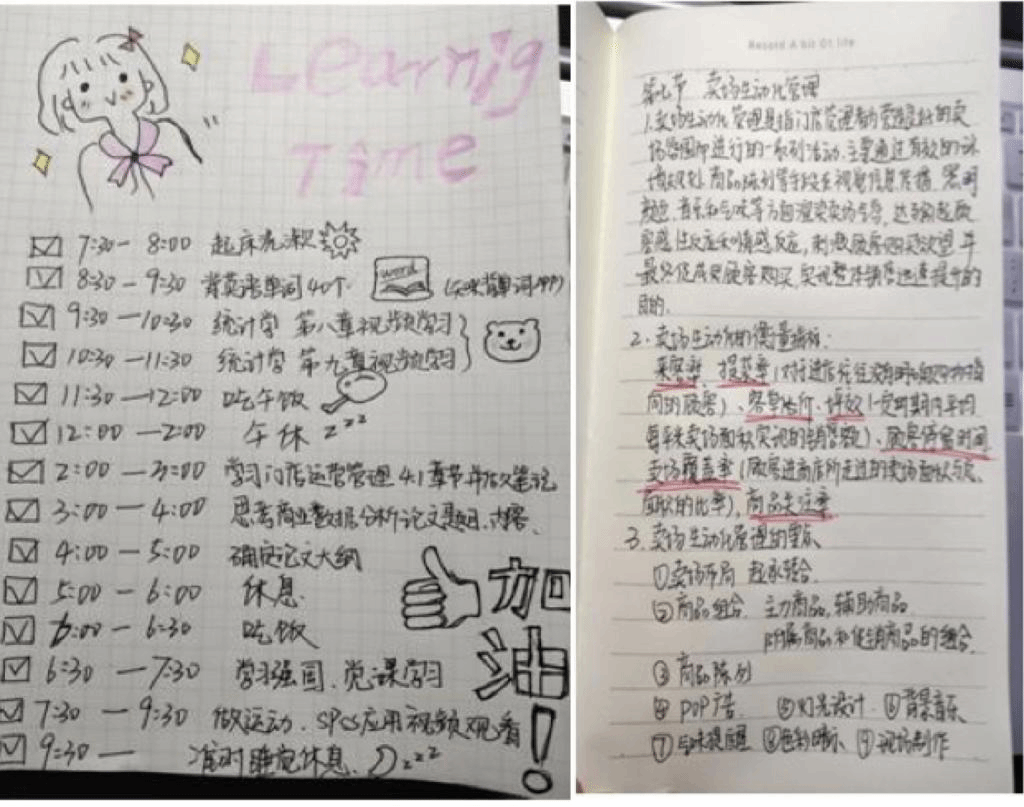 Learnig
Time
7:30— 8:00 起床洗漱
8:30 - 9:30 背英语单词40个 word
9:30 —10:30 统计学 第八章视频学习
10:30 —11:30 统计学 第九章视频学习
11:30 —12:00 吃午饭
12:00 —2:00 午休 zzz
2:00 —3:00 学习门店运营管理 4.1章节并做笔记
3:00 — 4:00 思考商业数据分析论文题目、内容、
4:00 — 5:00 确定论文大纲
5:00 — 6:00 休息
6:00 — 6:30 吃饭
6:30 — 7:30 学习强国、党课学习
7:30 — 9:30 做运动、SPCS应用视频观看
9:30 — 准时睡觉休息、zzz
加
油
!
Record A bit Of life
第七节 卖场生动化管理
1.卖场生动化管理是指门店管理者为营造良好的卖
场氛围所进行的一系列活动.主要通过有效的环
境规划、商品陈列等手段在视觉信息传播、照明
颜色、音乐和气味等方面渲染卖场气氛,达到引起顾
客感性反应和情感反应,刺激顾客购买欲望并
最终促成顾客购买,实现整体销售迅速提升的
目的.
2.卖场生动化的衡量指标:
来客率、提袋率(对于进店往往没有明确购物指
向的顾客)、客单估价、坪效(一定时期内平均
每平米卖场面积实现的销售额)、顾客停留时间
卖场覆盖率(顾客进商店所走过的卖场面积与总
面积的比率)、商品关注率
3.卖场生动化管理的要点
①卖场布局 起承转合
②商品组合 主力商品,辅助商品
附属商品和促销商品的组合
③商品陈列
④POP广告 ⑤灯光设计 ⑥背景音乐
⑦气味提醒 ⑧色彩暗示 ⑨现场制作